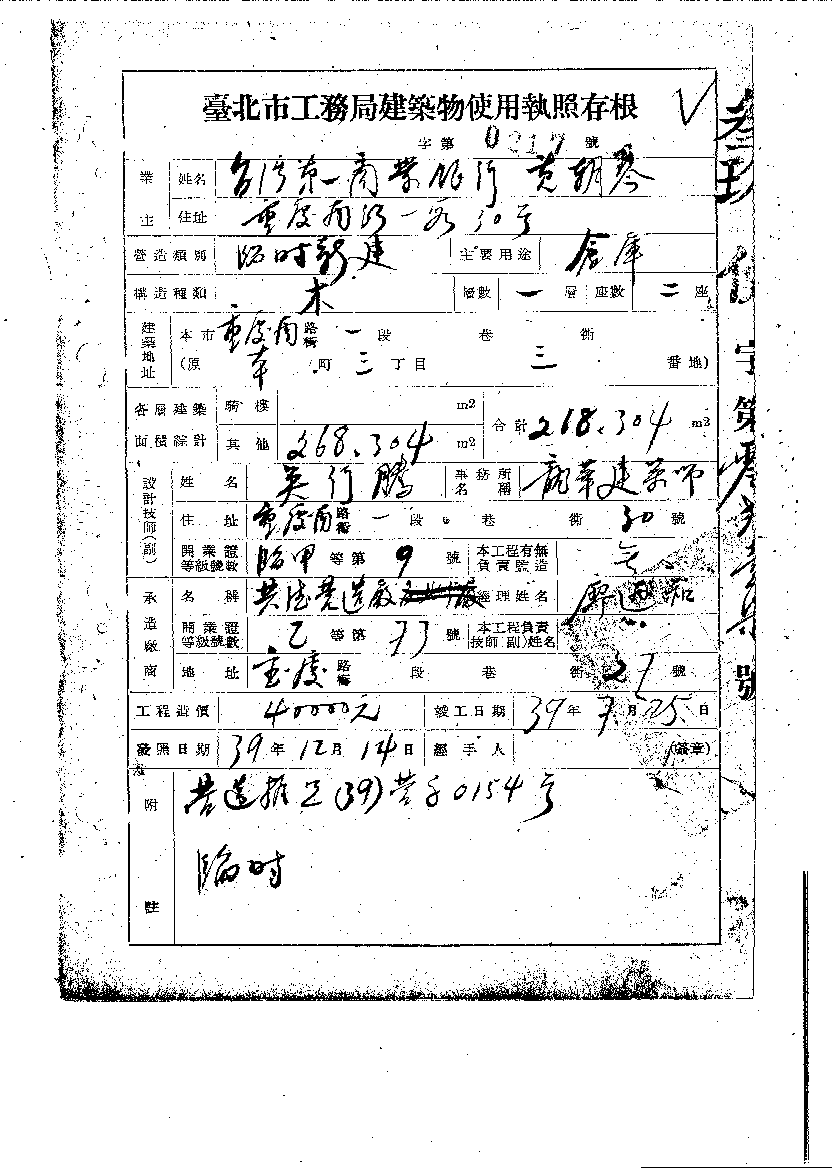 臺北市工務局建築物使用執照存根
字第0217號
業主 姓名 台湾第一商業銀行 黄朝琴
住址 重慶南路一段30号
營造類別 臨時新建 主要用途 倉庫
構造種類 木 層數 一 層 座數 二 座
建築地址 本市 重慶南 路街 一 段 巷 衖
(原 本 町 三 丁目 三 番地)
各層建築面積綜計 騎樓 m2 合計 268.304 m2
其他 268.304 m2
設計技師(副) 姓名 吳行鵬 事務所名稱 龍華建築師
住址 重慶南 路街 一 段 巷 衖 30 號
開業證等級號數 臨甲 等第 9 號 本工程有無負責監造
承造廠商 名稱 共益營造廠 經理姓名 廖
開業證等級號數 乙 等第 73 號 本工程負責技師(副)姓名
地址 重慶 路街 段 巷 衖 27 號
工程造價 40000元 竣工日期 39年7月25日
發照日期 39年12月14日 經手人 (蓋章)
附註 營造執工(39)營字0154号
臨時
叁玖
字第零
號